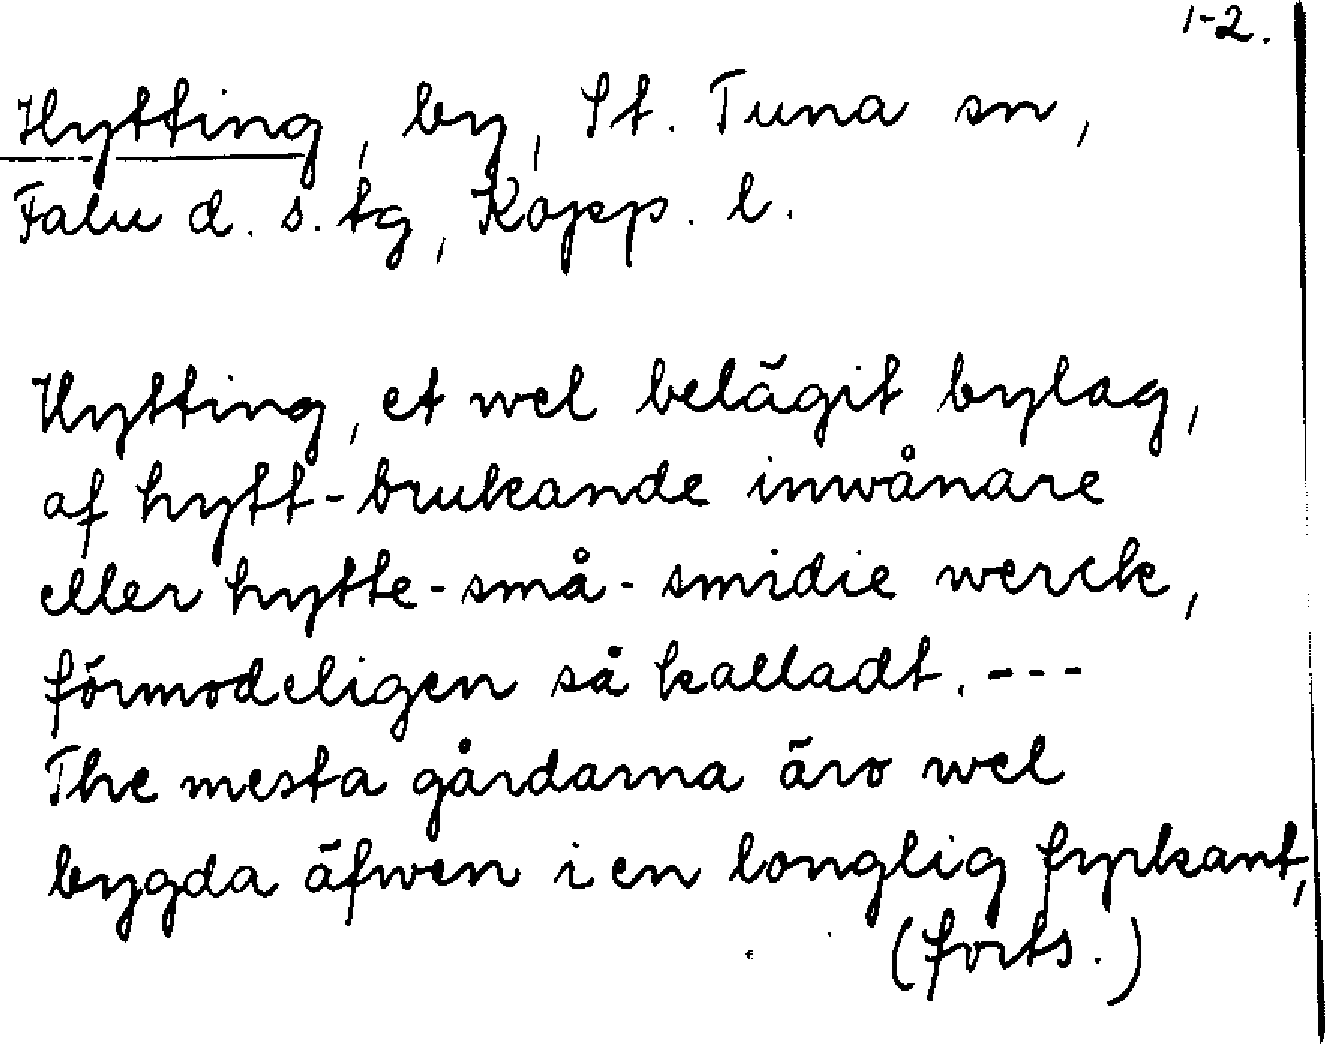 1-2.
Hytting, by, St. Tuna sn,
Falu d. s. tg, Kopp. l.
Hytting, et wel belägit bylag,
af hytt-brukande inwånare
eller hytte-små-smidie werck,
förmodeligen så kalladt. ---
The mesta gårdarna äro wel
bygda äfwen i en longlig fyrkant,
(forts.)